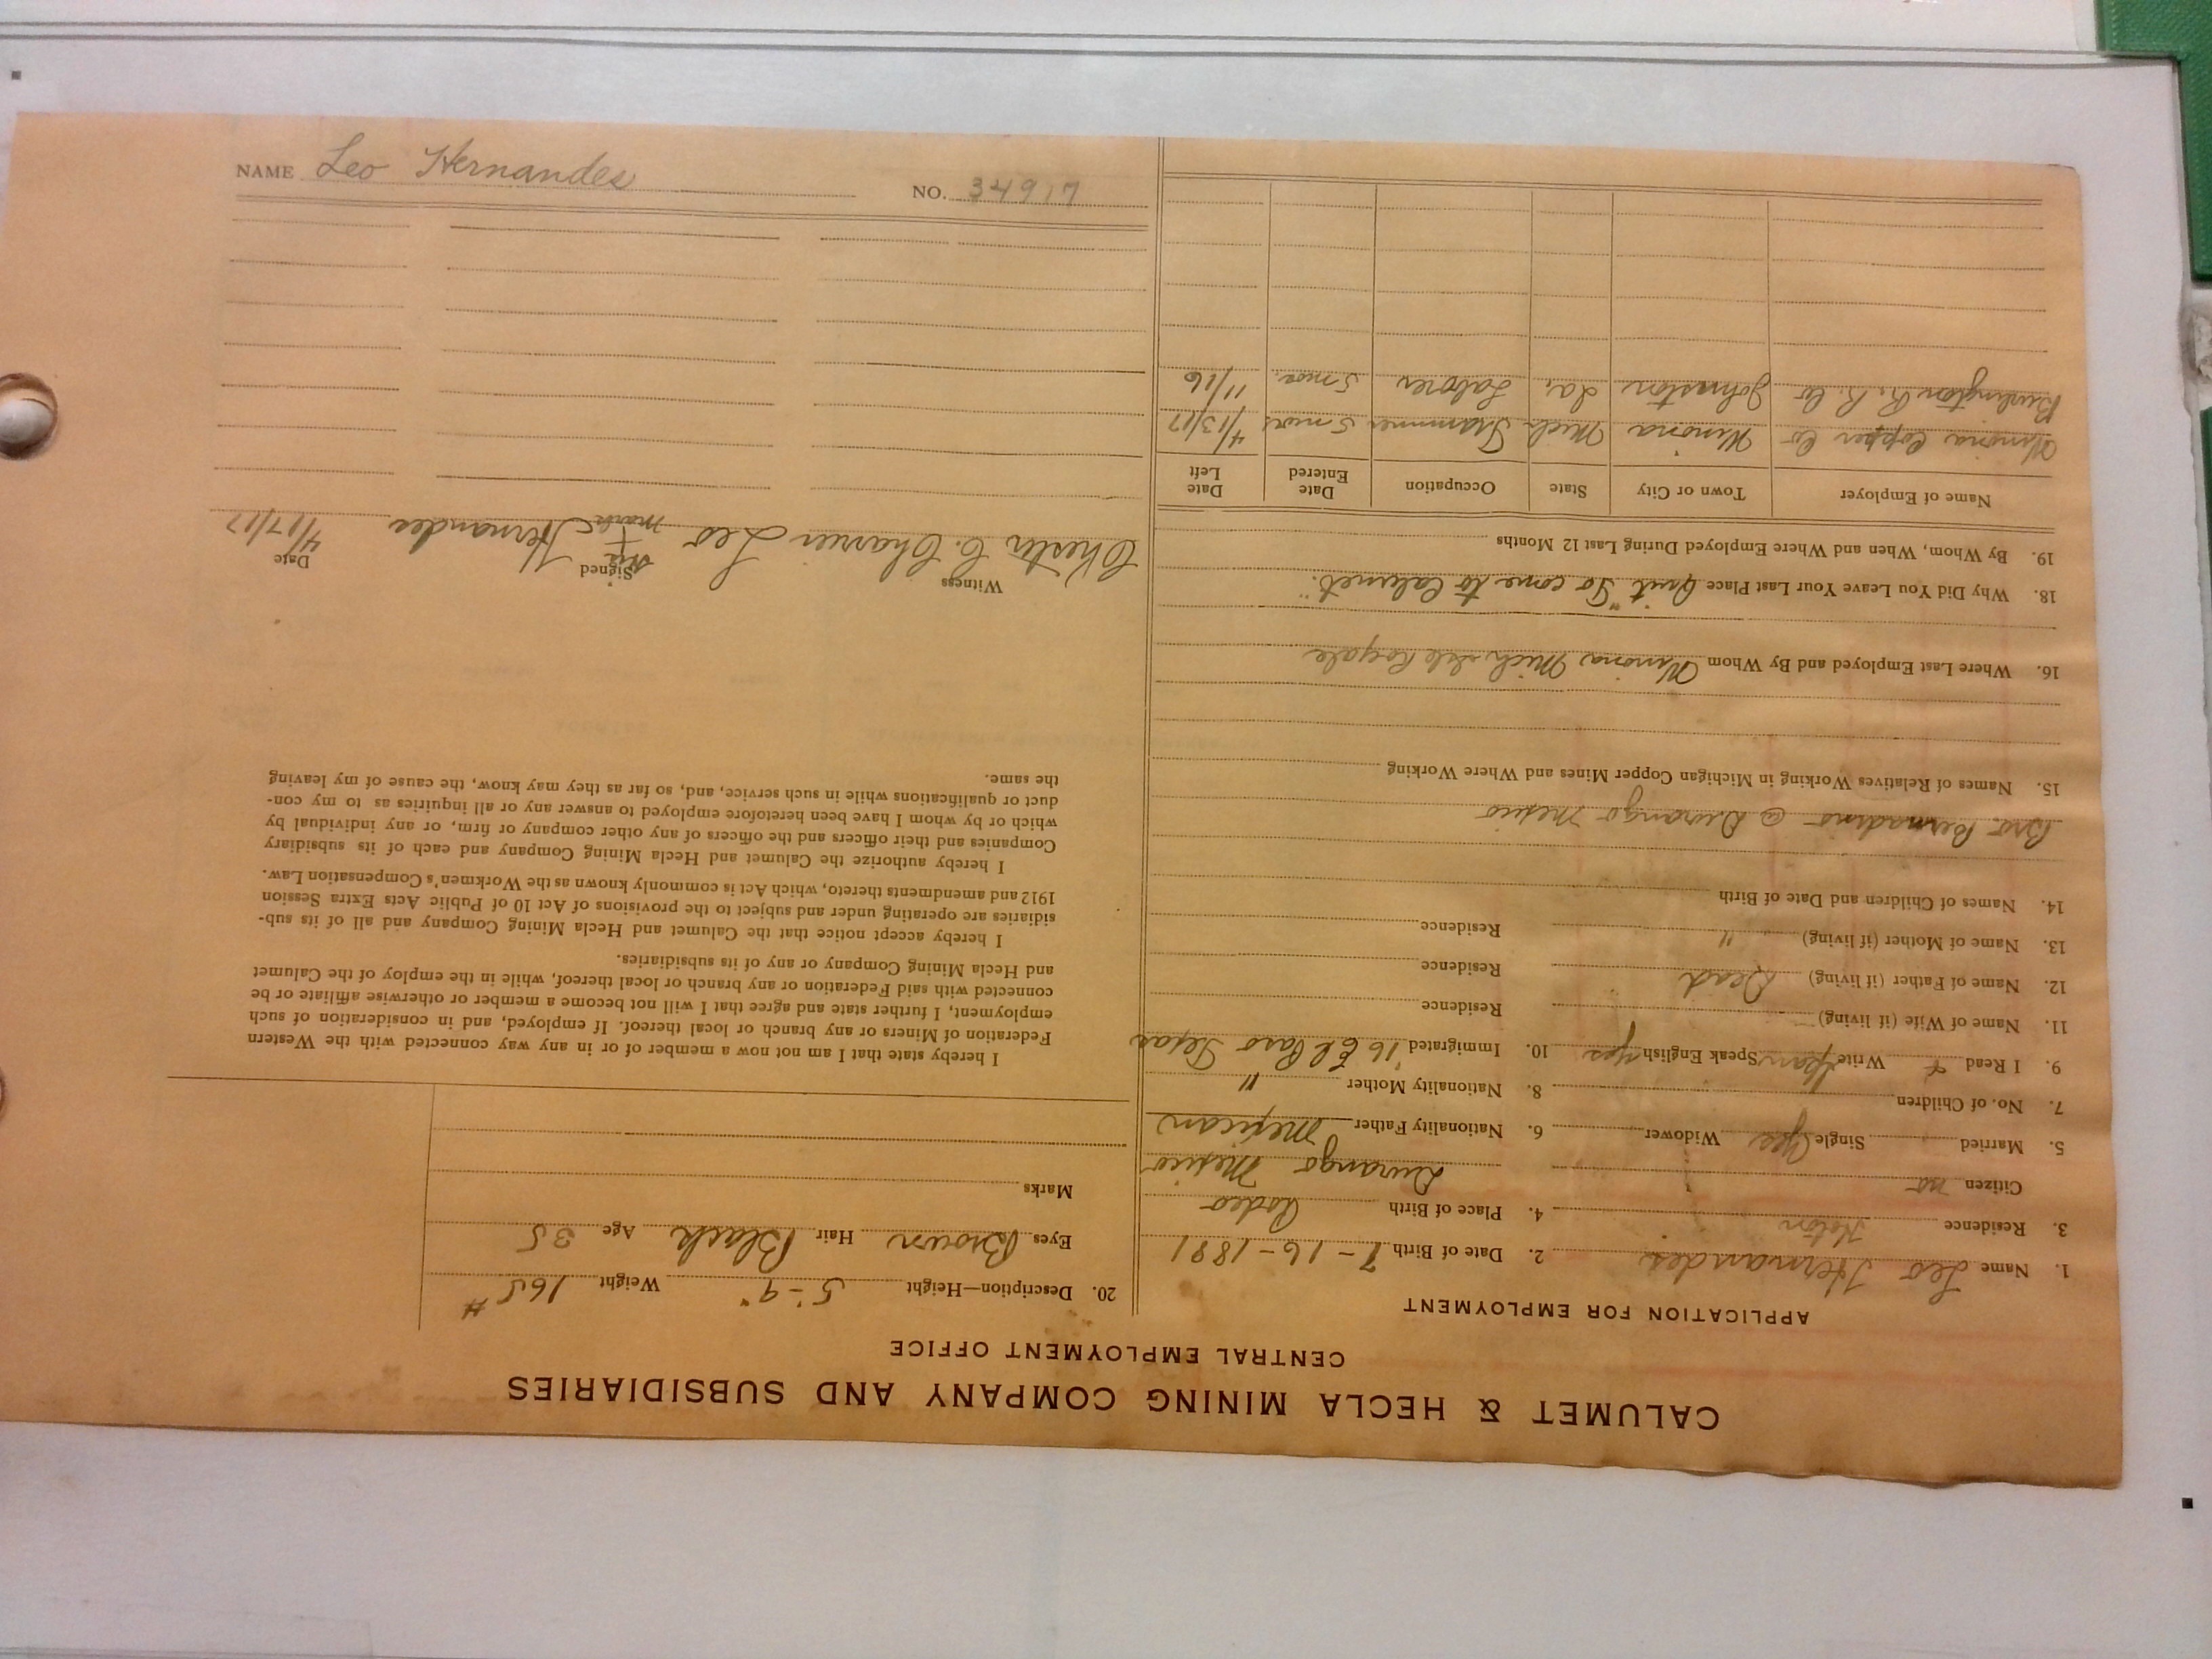 CALUMET & HECLA MINING COMPANY AND SUBSIDIARIES
CENTRAL EMPLOYMENT OFFICE
APPLICATION FOR EMPLOYMENT
1. Name Leo Hernandes 2. Date of Birth 7-16-1881
3. Residence 4. Place of Birth Rodeo
Citizen no Durango Mexico
5. Married Single Yes Widower 6. Nationality Father Mexican
7. No. of Children 8. Nationality Mother "
9. I Read + Write Span Speak English Yes 10. Immigrated '16 El Paso Texas
11. Name of Wife (if living) Residence
12. Name of Father (if living) Dead Residence
13. Name of Mother (if living) " Residence
14. Names of Children and Date of Birth
Bro. Bernadino @ Durango Mexico
15. Names of Relatives Working in Michigan Copper Mines and Where Working
16. Where Last Employed and By Whom Winona Mich Isle Royale
18. Why Did You Leave Your Last Place Quit "To come to Calumet".
19. By Whom, When and Where Employed During Last 12 Months
Name of Employer Town or City State Occupation Date Entered Date Left
Winona Copper Co Winona Mich Trammer 5 mos 4/13/17
Burlington R. R. Co Johnston Ia. Laborer 5 mos. 11/16
20. Description—Height 5'-9" Weight 165 #
Eyes Brown Hair Black Age 35
Marks
I hereby state that I am not now a member of or in any way connected with the Western
Federation of Miners or any branch or local thereof. If employed, and in consideration of such
employment, I further state and agree that I will not become a member or otherwise affiliate or be
connected with said Federation or any branch or local thereof, while in the employ of the Calumet
and Hecla Mining Company or any of its subsidiaries.
I hereby accept notice that the Calumet and Hecla Mining Company and all of its sub-
sidiaries are operating under and subject to the provisions of Act 10 of Public Acts Extra Session
1912 and amendments thereto, which Act is commonly known as the Workmen's Compensation Law.
I hereby authorize the Calumet and Hecla Mining Company and each of its subsidiary
Companies and their officers and the officers of any other company or firm, or any individual by
which or by whom I have been heretofore employed to answer any or all inquiries as to my con-
duct or qualifications while in such service, and, so far as they may know, the cause of my leaving
the same.
Witness Signed Date
his
Chester C. Leo X Hernandes 4/17/17
mark
NAME Leo Hernandes NO. 34917